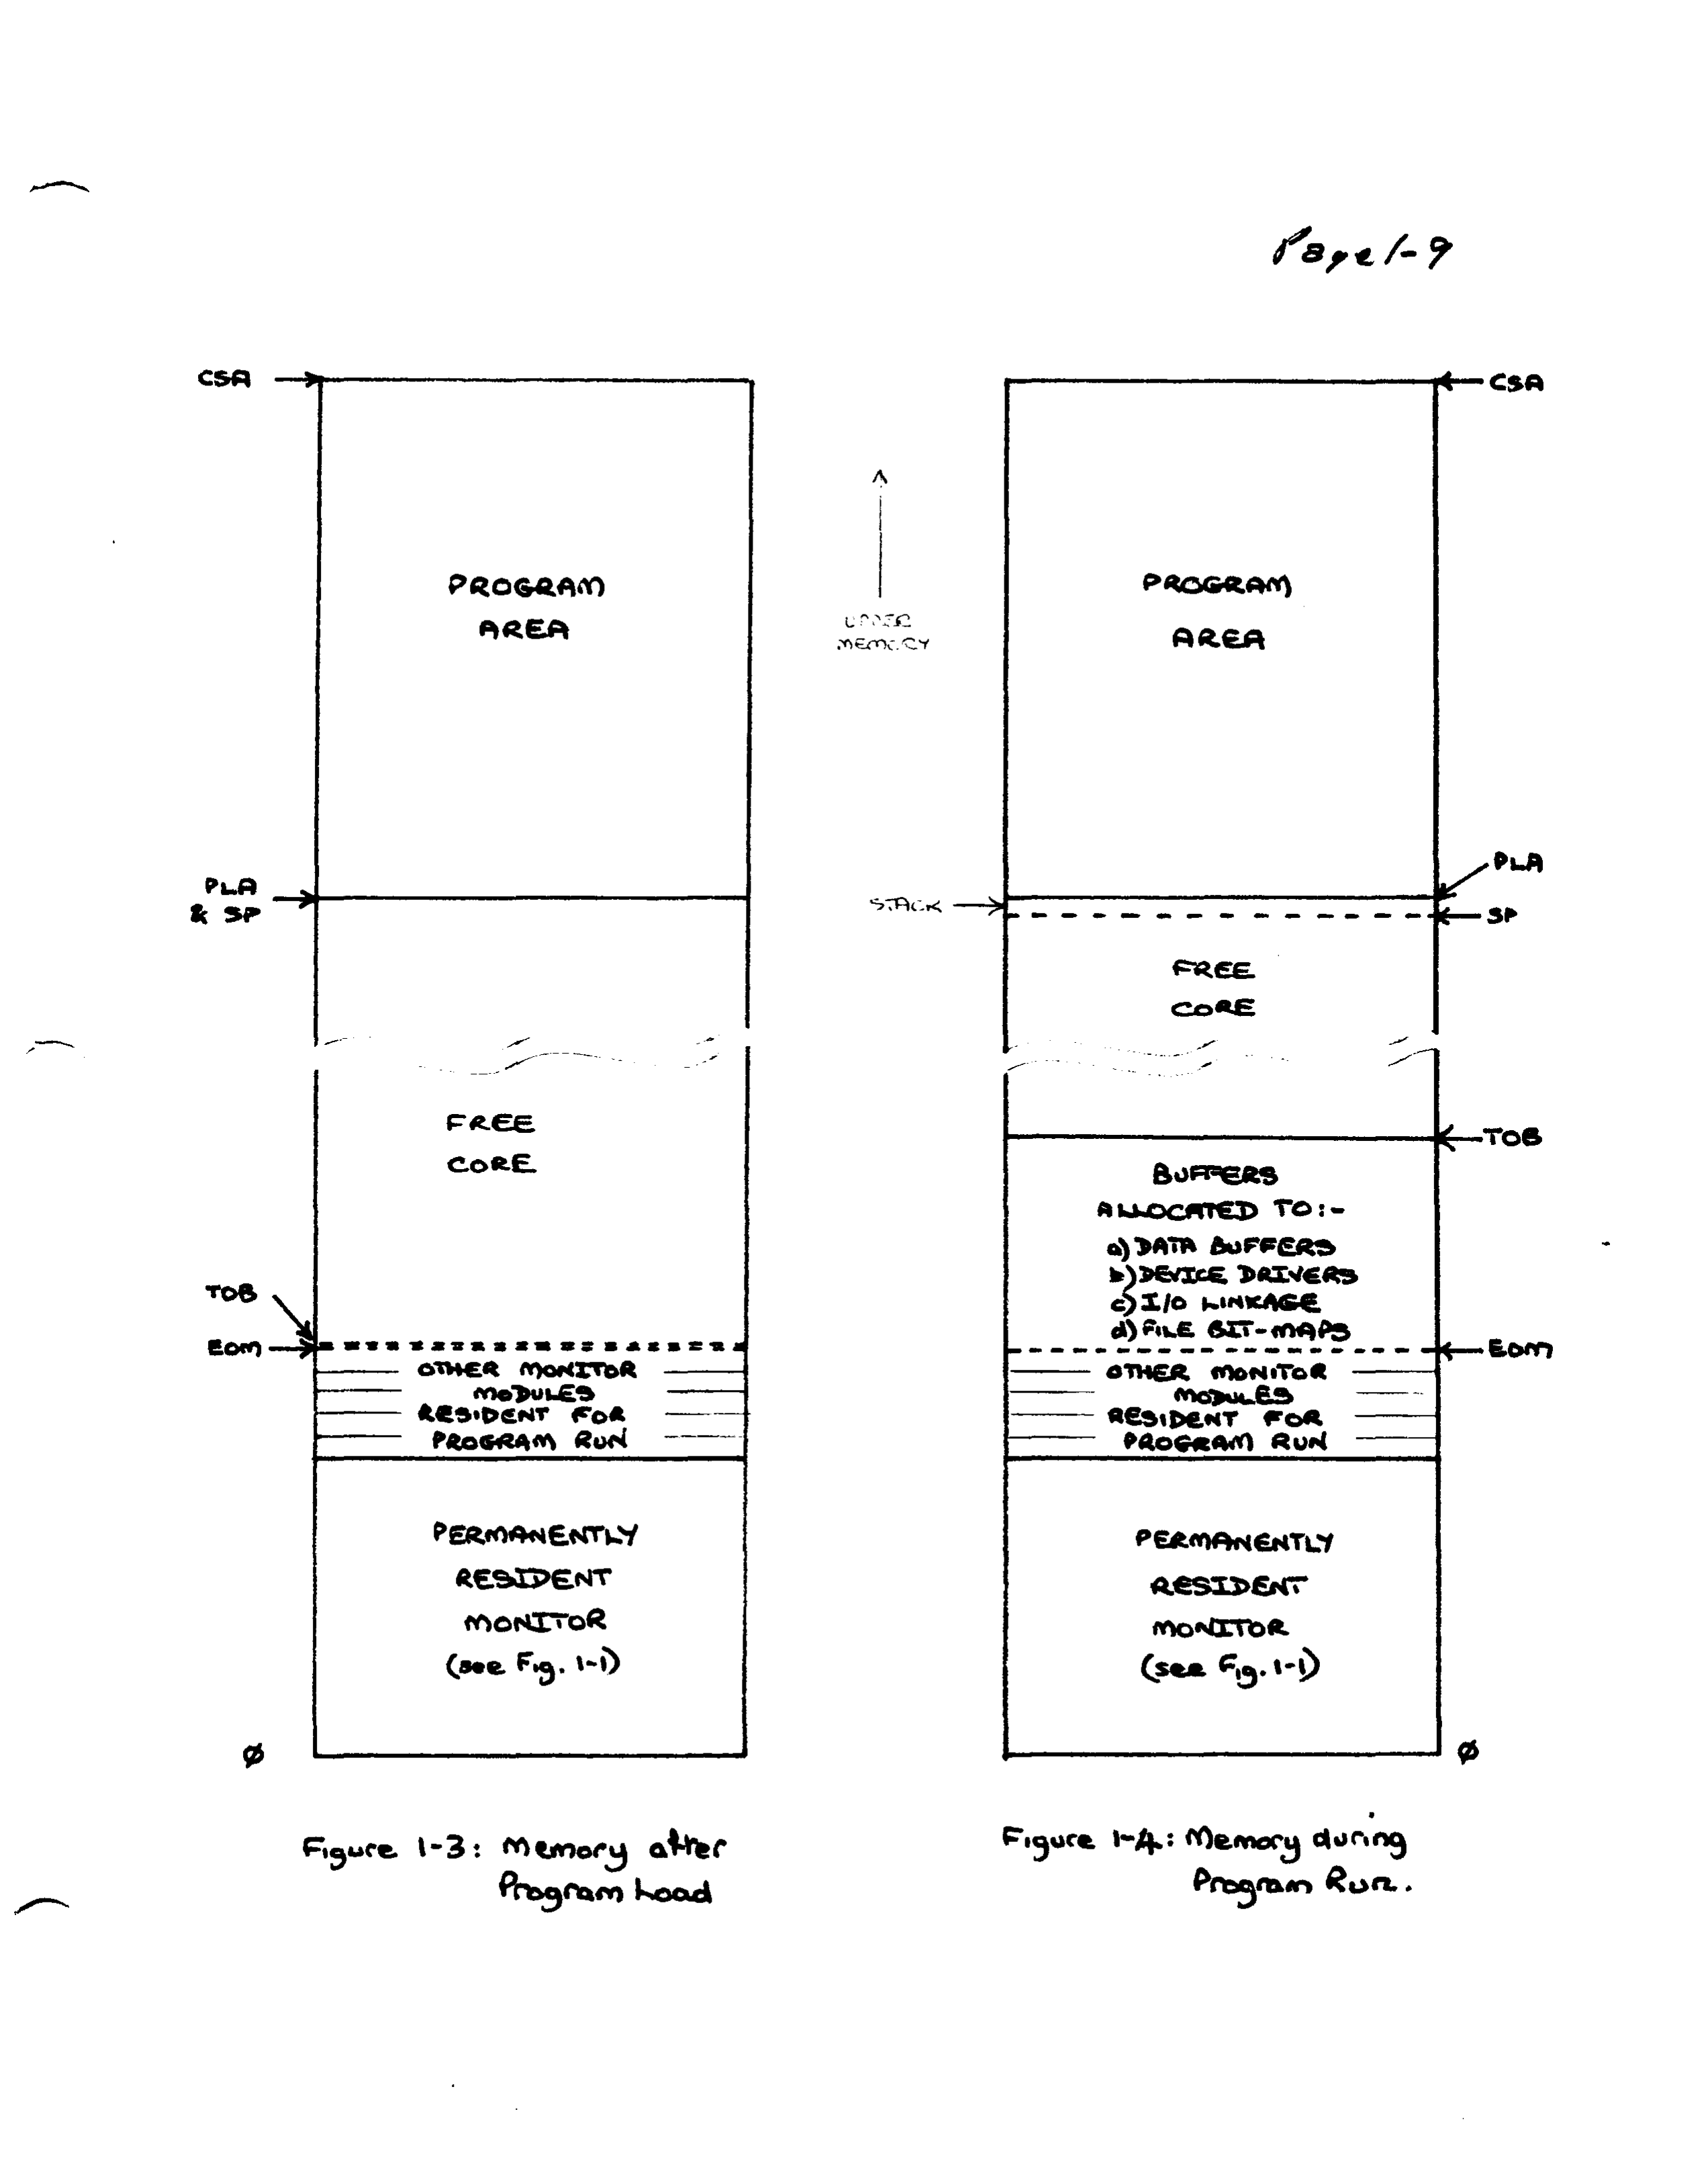 Page 1-9
CSA
PROGRAM
AREA
PLA
& SP
FREE
CORE
TOB
EOM
OTHER MONITOR
MODULES
RESIDENT FOR
PROGRAM RUN
PERMANENTLY
RESIDENT
MONITOR
(see Fig. 1-1)
Ø
Figure 1-3: Memory after
Program Load
UPPER
MEMORY
CSA
PROGRAM
AREA
PLA
STACK
SP
FREE
CORE
TOB
BUFFERS
ALLOCATED TO:-
a) DATA BUFFERS
b) DEVICE DRIVERS
c) I/O LINKAGE
d) FILE BIT-MAPS
EOM
OTHER MONITOR
MODULES
RESIDENT FOR
PROGRAM RUN
PERMANENTLY
RESIDENT
MONITOR
(see Fig. 1-1)
Ø
Figure 1-4: Memory during
Program Run.